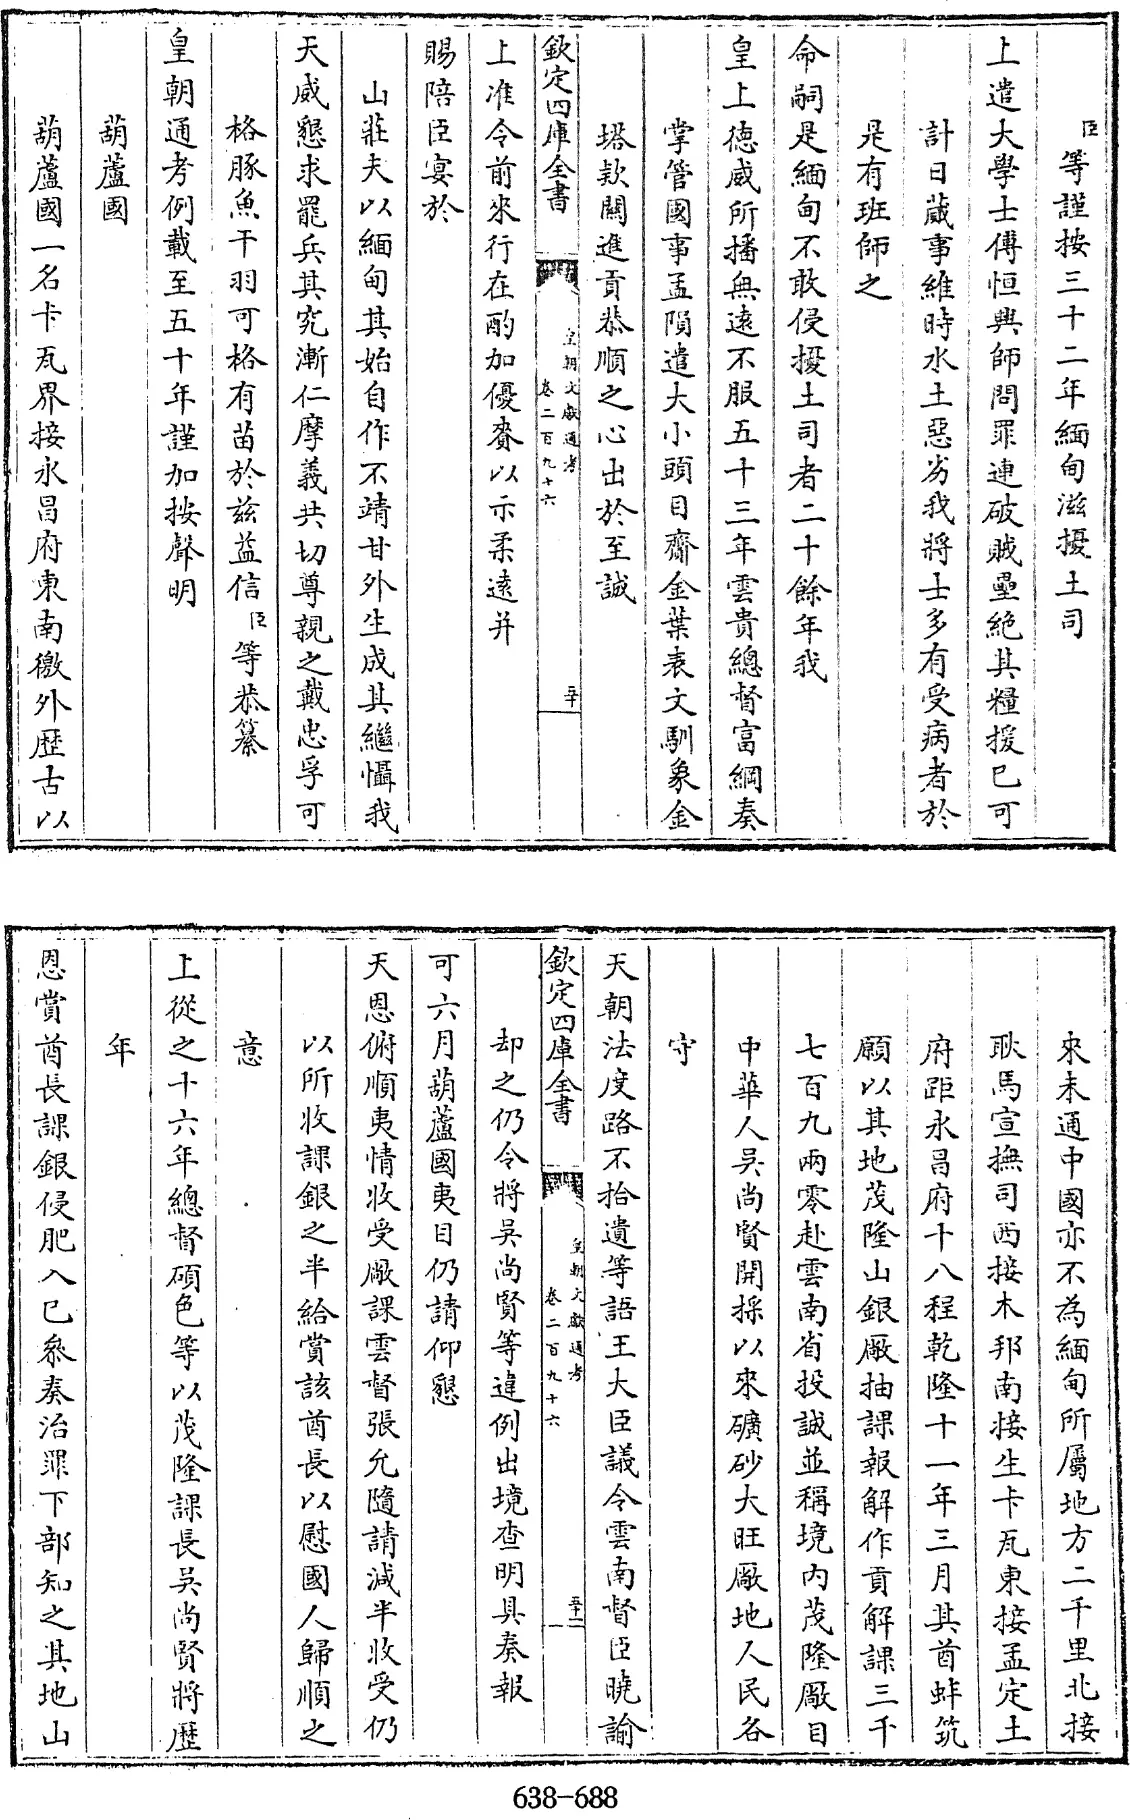 臣等謹按三十二年緬甸滋擾土司
上遣大學士傅恒興師問罪連破賊壘絶其糧援已可
計日蕆事維時水土惡劣我將士多有受病者於
是有班師之
命嗣是緬甸不敢侵擾土司者二十餘年我
皇上徳威所播無逺不服五十三年雲貴總督富綱奏
掌管國事孟隕遣大小頭目齎金葉表文馴象金
塔欵關進貢恭順之心出於至誠
欽定四庫全書
皇朝文獻通考
卷二百九十六
五十
上准令前來行在酌加優賚以示柔逺并
賜陪臣宴於
山莊夫以緬甸其始自作不靖甘外生成其繼懾我
天威懇求罷兵其究漸仁摩義共切尊親之戴忠孚可
格豚魚干羽可格有苗於兹益信臣等恭纂
皇朝通考例載至五十年謹加按聲明
葫蘆國
葫蘆國一名卡瓦界接永昌府東南徼外歴古以
來未通中國亦不為緬甸所屬地方二千里北接
耿馬宣撫司西接木邦南接生卡瓦東接孟定土
府距永昌府十八程乾隆十一年三月其酋蚌筑
願以其地茂隆山銀廠抽課報解作貢解課三千
七百九兩零赴雲南省投誠並稱境内茂隆廠目
中華人吳尚賢開採以來礦砂大旺廠地人民各
守
天朝法度路不拾遺等語王大臣議令雲南督臣曉諭
欽定四庫全書
皇朝文獻通考
卷二百九十六
五十一
却之仍令將吳尚賢等違例出境查明具奏報
可六月葫蘆國夷目仍請仰懇
天恩俯順夷情收受廠課雲督張允隨請減半收受仍
以所收課銀之半給賞該酋長以慰國人歸順之
意
上從之十六年總督碩色等以茂隆課長吳尚賢將歴
年
恩賞酋長課銀侵肥入已叅奏治罪下部知之其地山
638-688